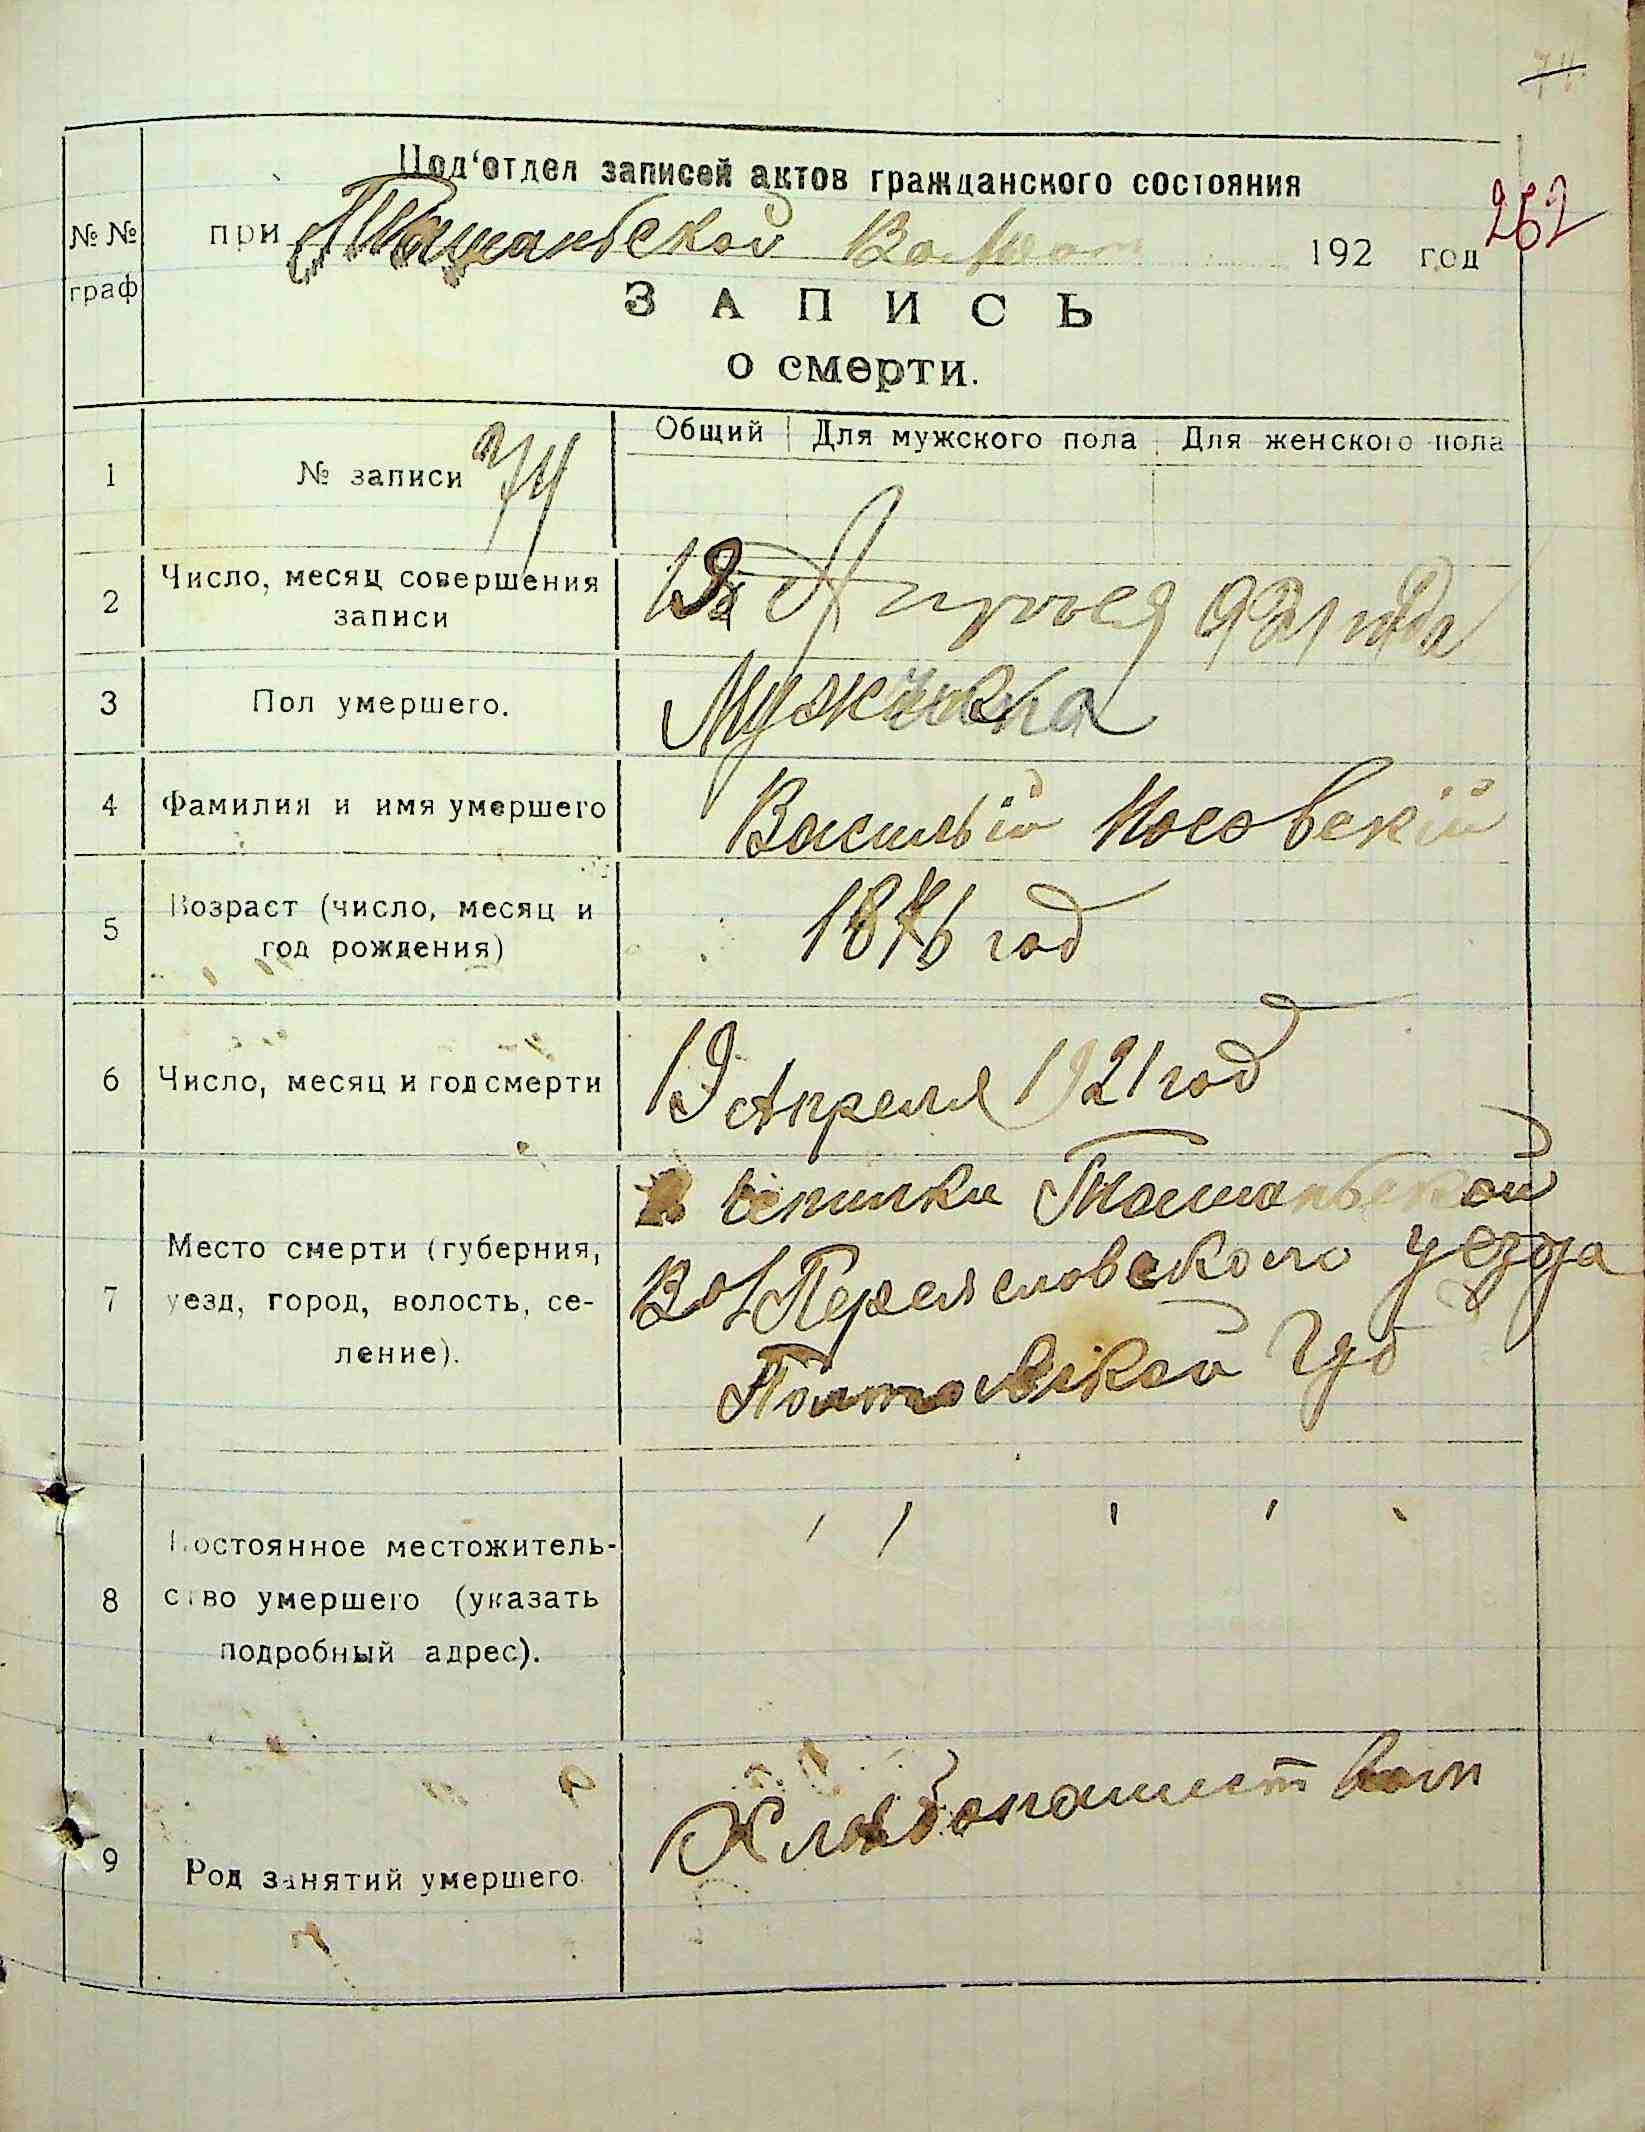 74
Под‘отдел записей актов гражданского состояния
№№ граф
при Ташаньской Волост 192 год
262
ЗАПИСЬ
о смерти.
Общий Для мужского пола Для женского пола
1 № записи 74
2 Число, месяц совершения записи
19 Апреля 921 года
3 Пол умершего. Мужчина
4 Фамилия и имя умершего Василый Носовскій
5 Возраст (число, месяц и год рождения)
1876 год
6 Число, месяц и год смерти 19 Апреля 1921 год
7 Место смерти (губерния, уезд, город, волость, се-
ление).
Ташаньской
Вол Переяславского уезда
Полтавской Губ
8 Постоянное местожитель-
ство умершего (указать
подробный адрес).
9 Род занятий умершего Хлебопашеством